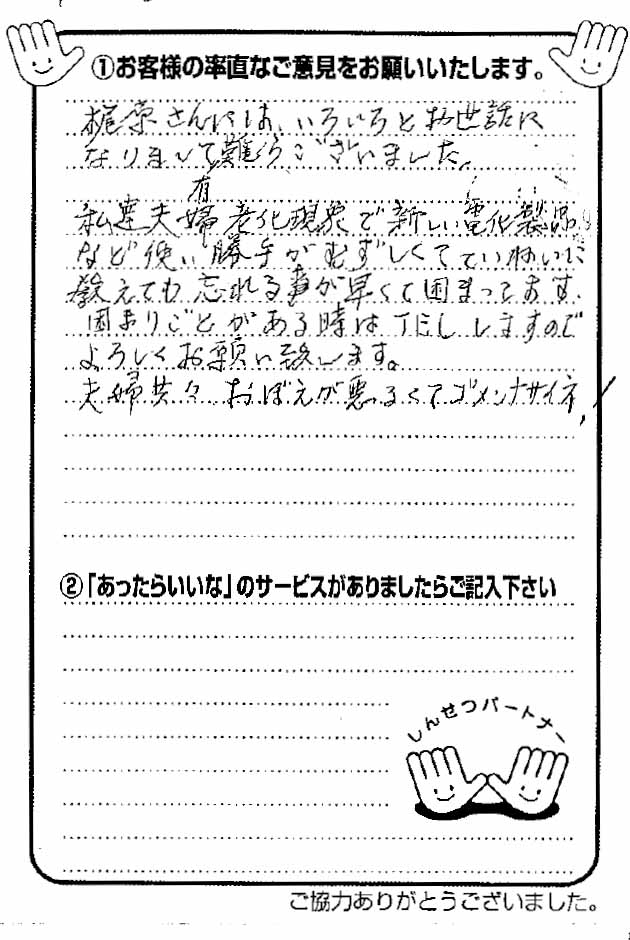 ①お客様の率直なご意見をお願いいたします。
梶原さんには、いろいろとお世話に
なりまして有難うございました。
私達夫婦老化現象で新しい電化製品
など使い勝手がむずしくてていねいに
教えても忘れる事が早くて困まってます、
困まりごとがある時はTELしますので
よろしくお願い致します。
夫婦共々おぼえが悪るくてゴメンナサイネ!
②「あったらいいな」のサービスがありましたらご記入下さい
しんせつパートナー
ご協力ありがとうございました。